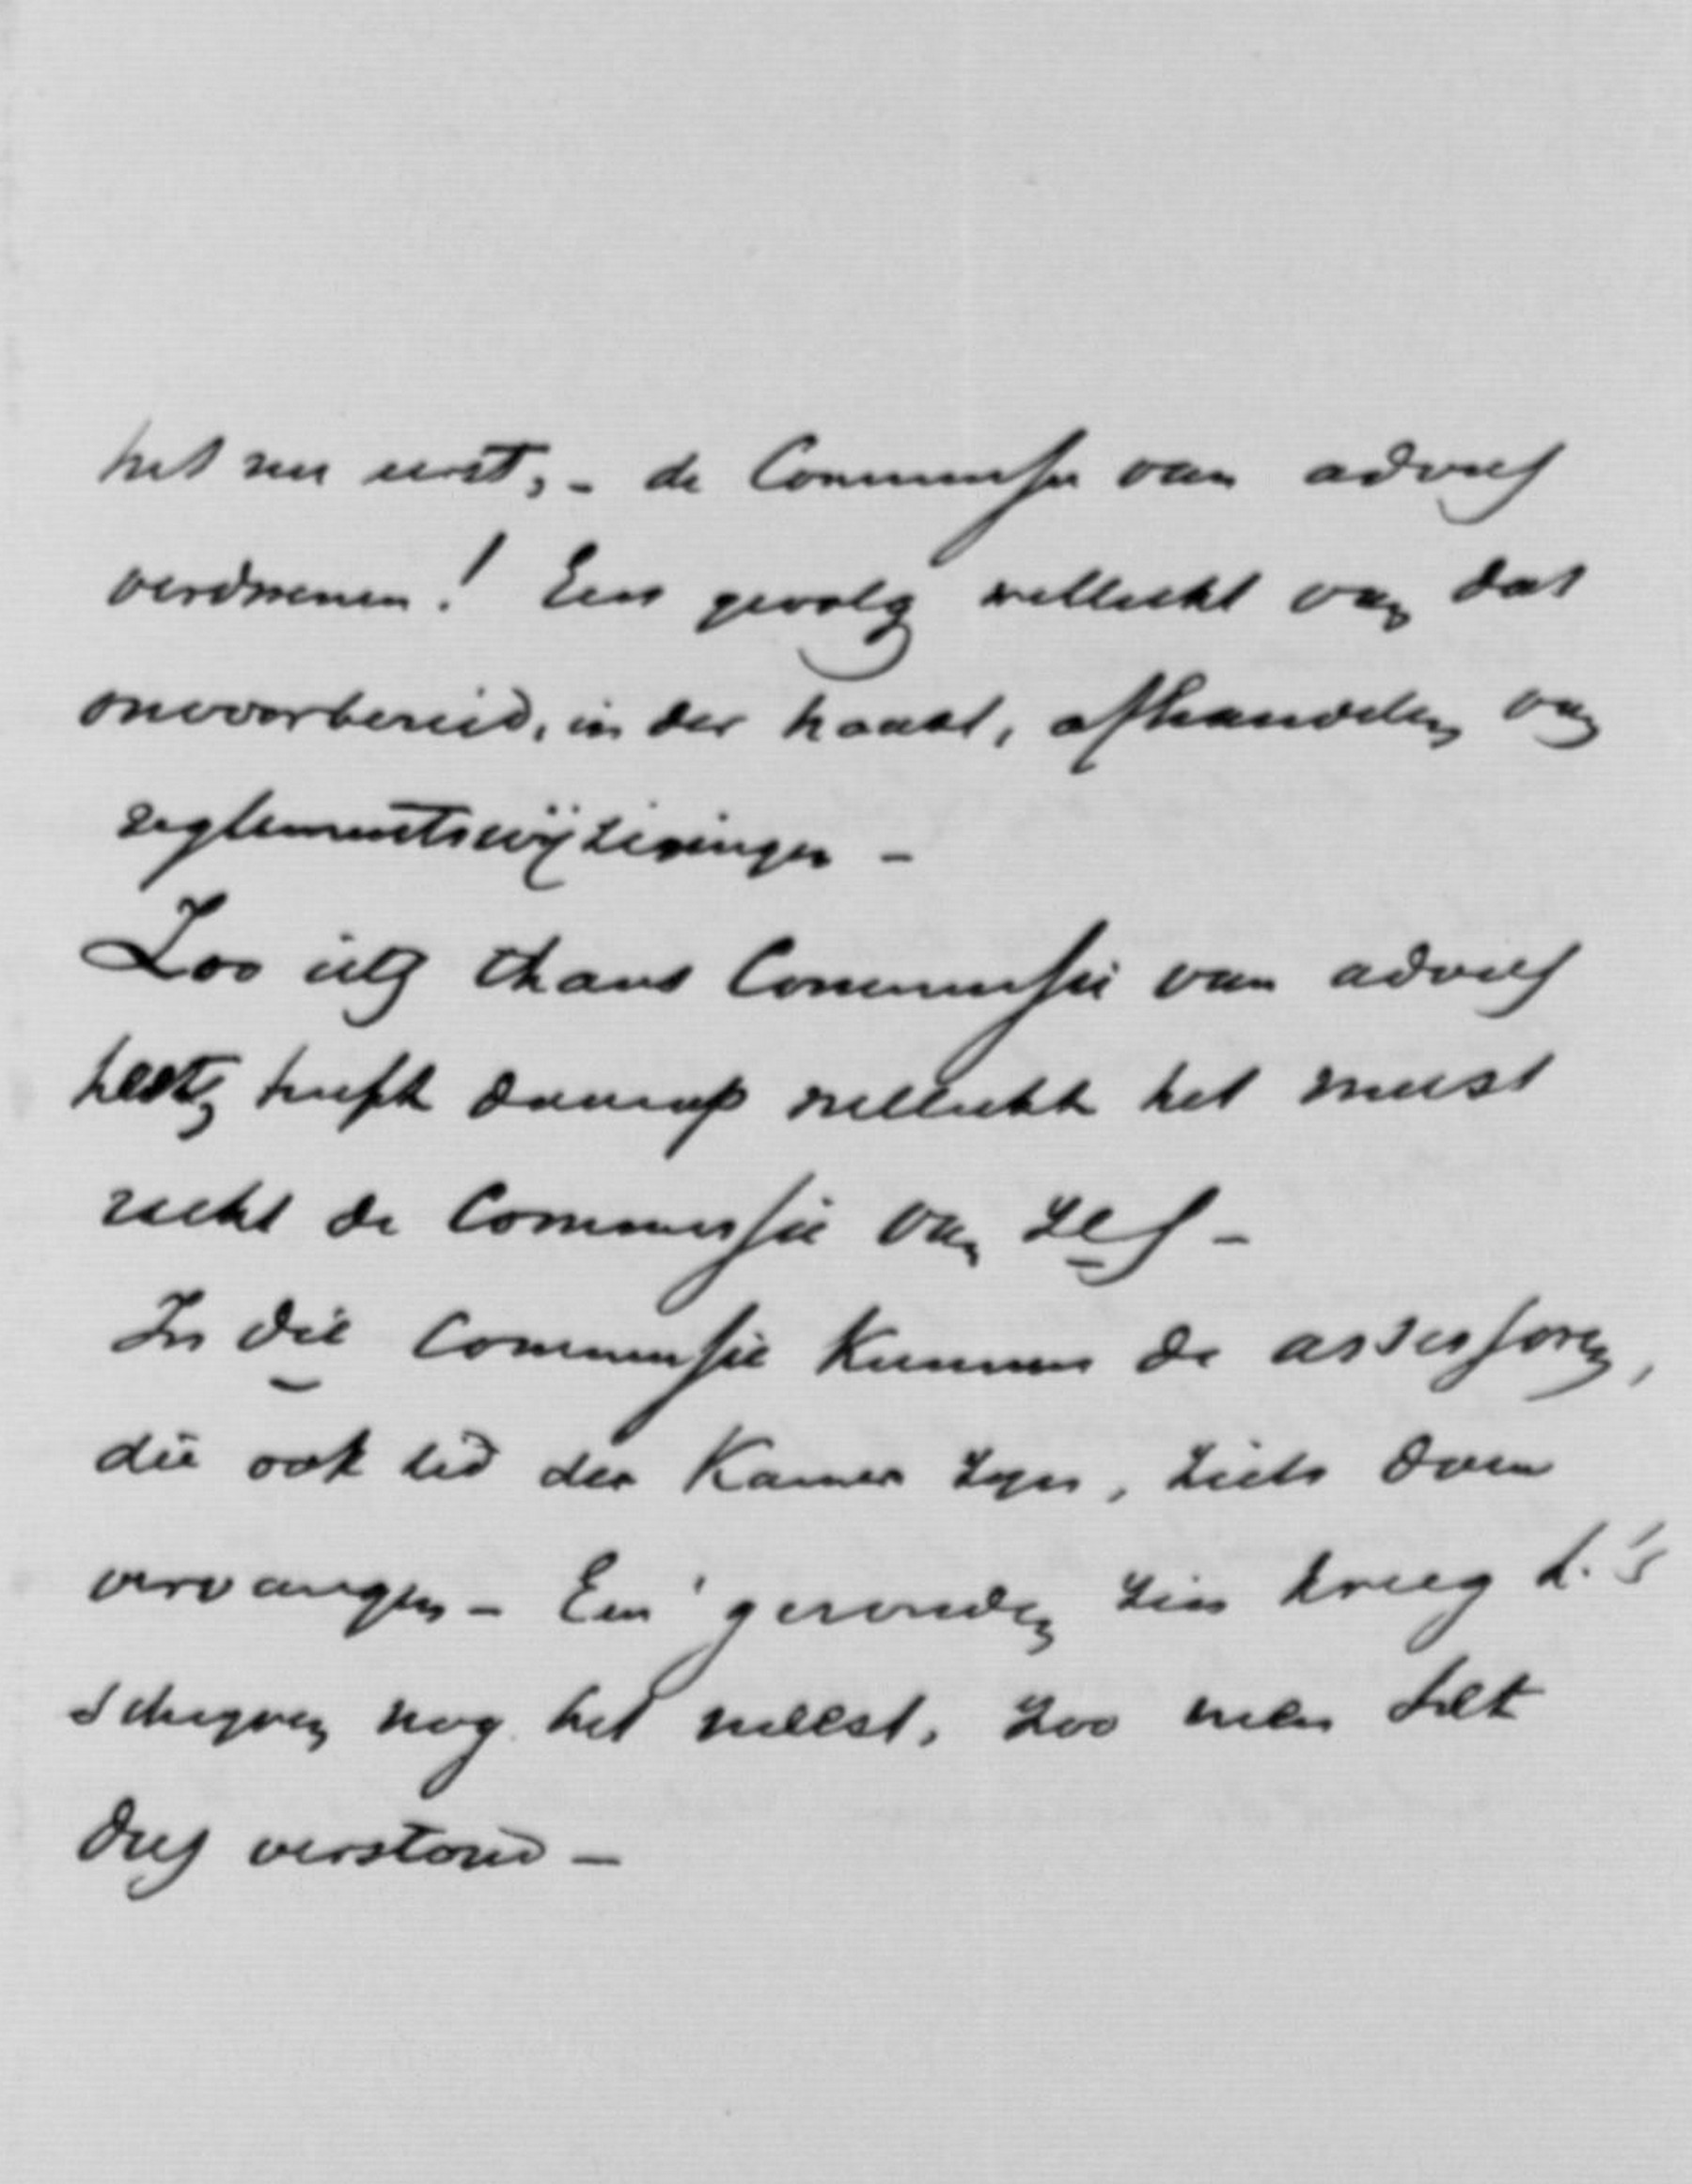 het nu eerst, - de Commissie van advies
verdwenen! Een gevolg wellicht van dat
onvoorbereid, in der haast, afhandelen van
reglementswijzigingen -
Zoo iets thans Commissie van advies
heeten, heeft daarop wellicht het meest
recht de Commissie van zes -
In die Commissie kunnen de assessoren,
die ook lid der Kamer zyn, zich doen
vervangen - Een gezonden zin kreeg
schryven nog het meest, zoo men
dus verstond -